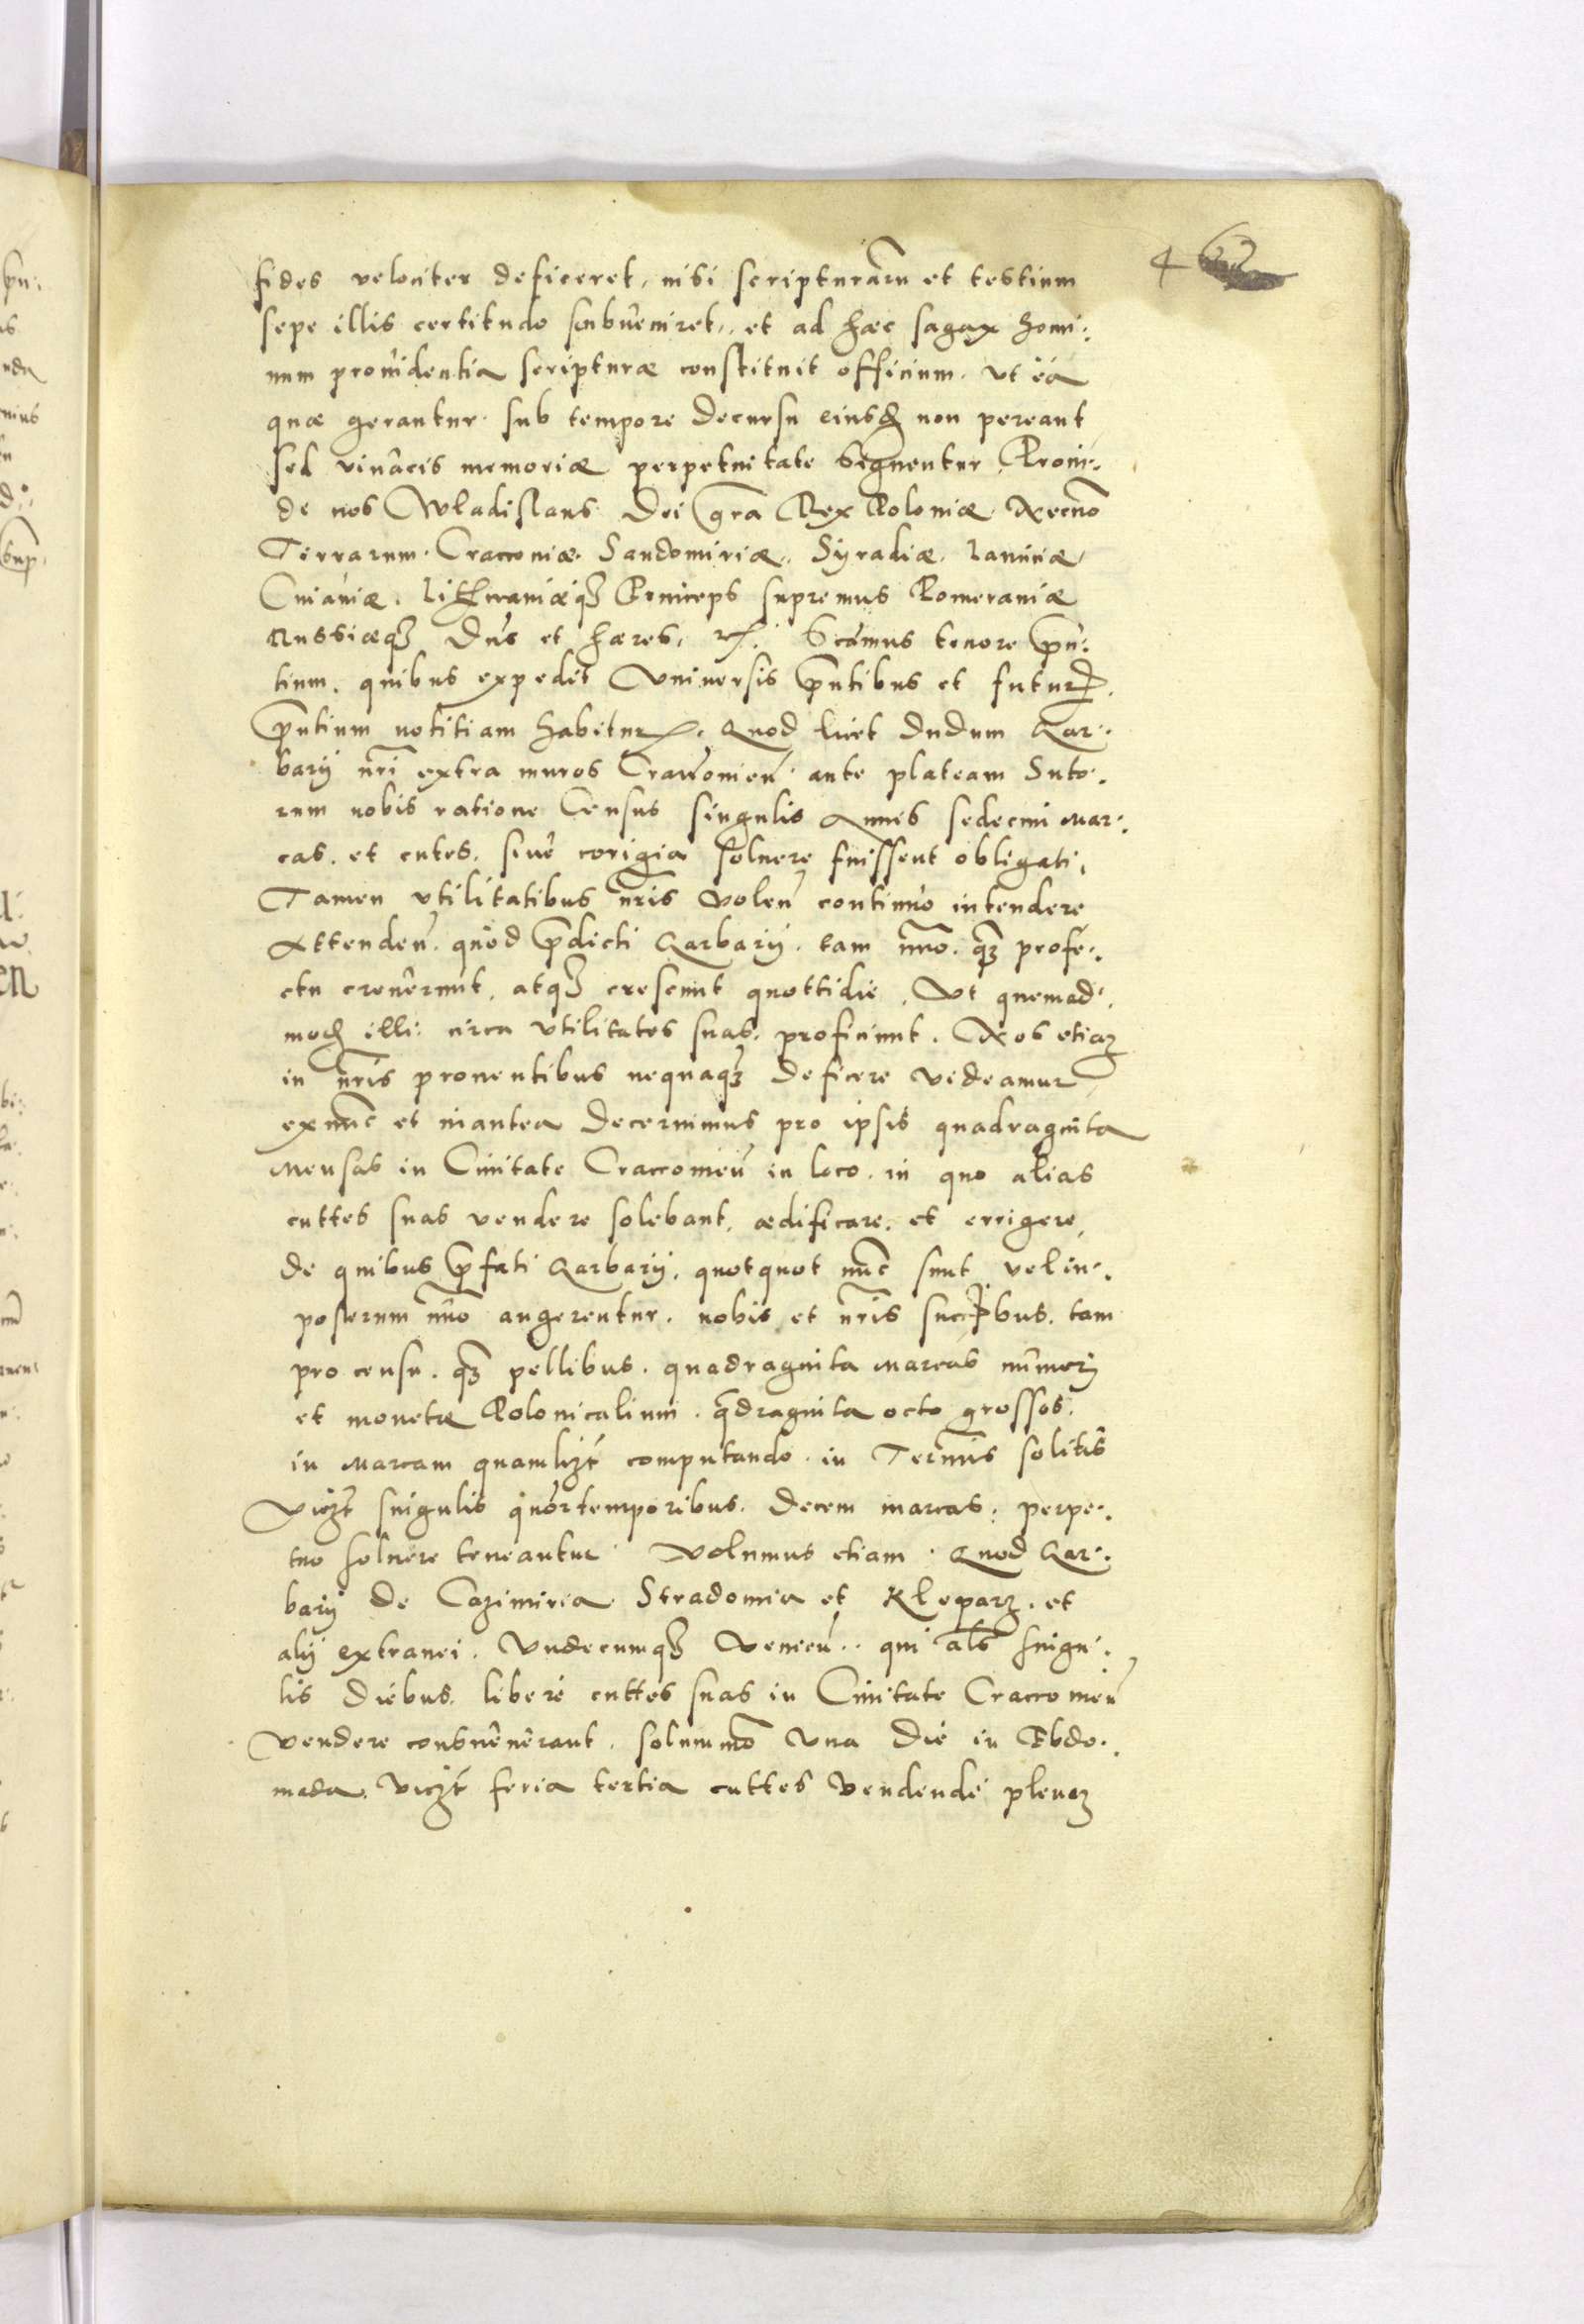 4
fides velociter deficeret, nisi scripturarũ et testium
sepe illis certitudo subueniret, et ad hæc sagax homi:
num prouidentia scripturæ constituit officium. Vt ea
quæ gerantur sub tempore decursu eiusđ non pereant
sed viuacis memoriæ perpetuitate vegnentur. Proin:
de nos Wladislaus Dei gr̃a Rex Poloniæ Necnõ
Terrarum Cracouiæ Sandomiriæ, Syradiæ, Lanciciæ
Cuiauiæ. Lithwaniæq3 Princeps supremus Pomeraniæ
Russiæq3 Dñs et hæres, etc̃. Scimus tenore p̃n:
tium. quibus expedit Vniuersis p̃ntibus et futur̃.
p̃ntium notitiam habitur̃. Quod licet dudum Gar:
barij nr̃i extra muros Cracouień ante plateam Suto:
rum nobis ratione Census singulis Annis sedecim mar:
cas. et cutes. siue corigia soluere fuissent obligati.
Tamen vtilitatibus nr̃is Voleń continuo intendere
Attendeń. quod p̃dicti Garbarij. tam nũo. q̃3 profe:
ctu creuerunt, atq3 crescunt quottidie, Vt quemad:
mođ illi circa Vtilitates suas proficiunt. Nos etia3
in nr̃is prouentibus nequaq̃3 deficere videamur
exnũc et inantea decernimus pro ipsis quadraginta
Mensas in Ciuitate Cracouień in loco. in quo alias
cuttes suas vendere solebant, ædificare. et errigere,
de quibus p̃fati Garbarij, quotquot nũc sunt velin:
posterum nũo augerentur. nobis et nr̃is succ̃bus. tam
pro censu. q̃3 pellibus. quadraginta marcas numeri
et monetæ Polonicalium. q̃draginta octo grossos.
in marcam quamliz̃t computando. in Termis̃ solitis
Vicz̃t singulis q̃uortemporibus. decem marcas: perpe:
tuo soluere teneantur. Volumus etiam. Quod Gar:
barij de Cazimiria Stradomia et Kleparz. et
alij extranei. Vndecumq3 Venień. qui als̃ singu:
lis diebus. libere cuttes suas in Ciuitate Cracouień
vendere consueuerant. solummõ vna die in Ebdo:
mada. Vicz̃t feria tertia cuttes vendendi plena3